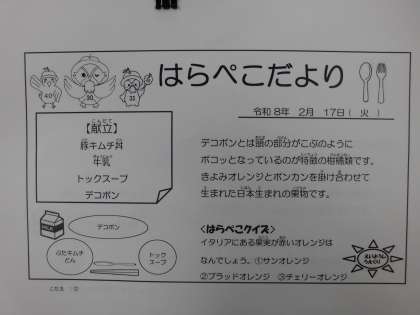 はらぺこだより
令和8年 2月 17日( 火 )
【献立】
豚キムチ丼
牛乳
トックスープ
デコポン
デコポンとは頭の部分がこぶのように
ボコッとなっているのが特徴の柑橘類です。
きよみオレンジとポンカンを掛け合わせて
生まれた日本生まれの果物です。
デコポン
ぶたキムチ
どん
トック
スープ
<はらぺこクイズ>
イタリアにある果実が赤いオレンジは
なんでしょう。①サンオレンジ
②ブラッドオレンジ ③チェリーオレンジ
こたえ :②